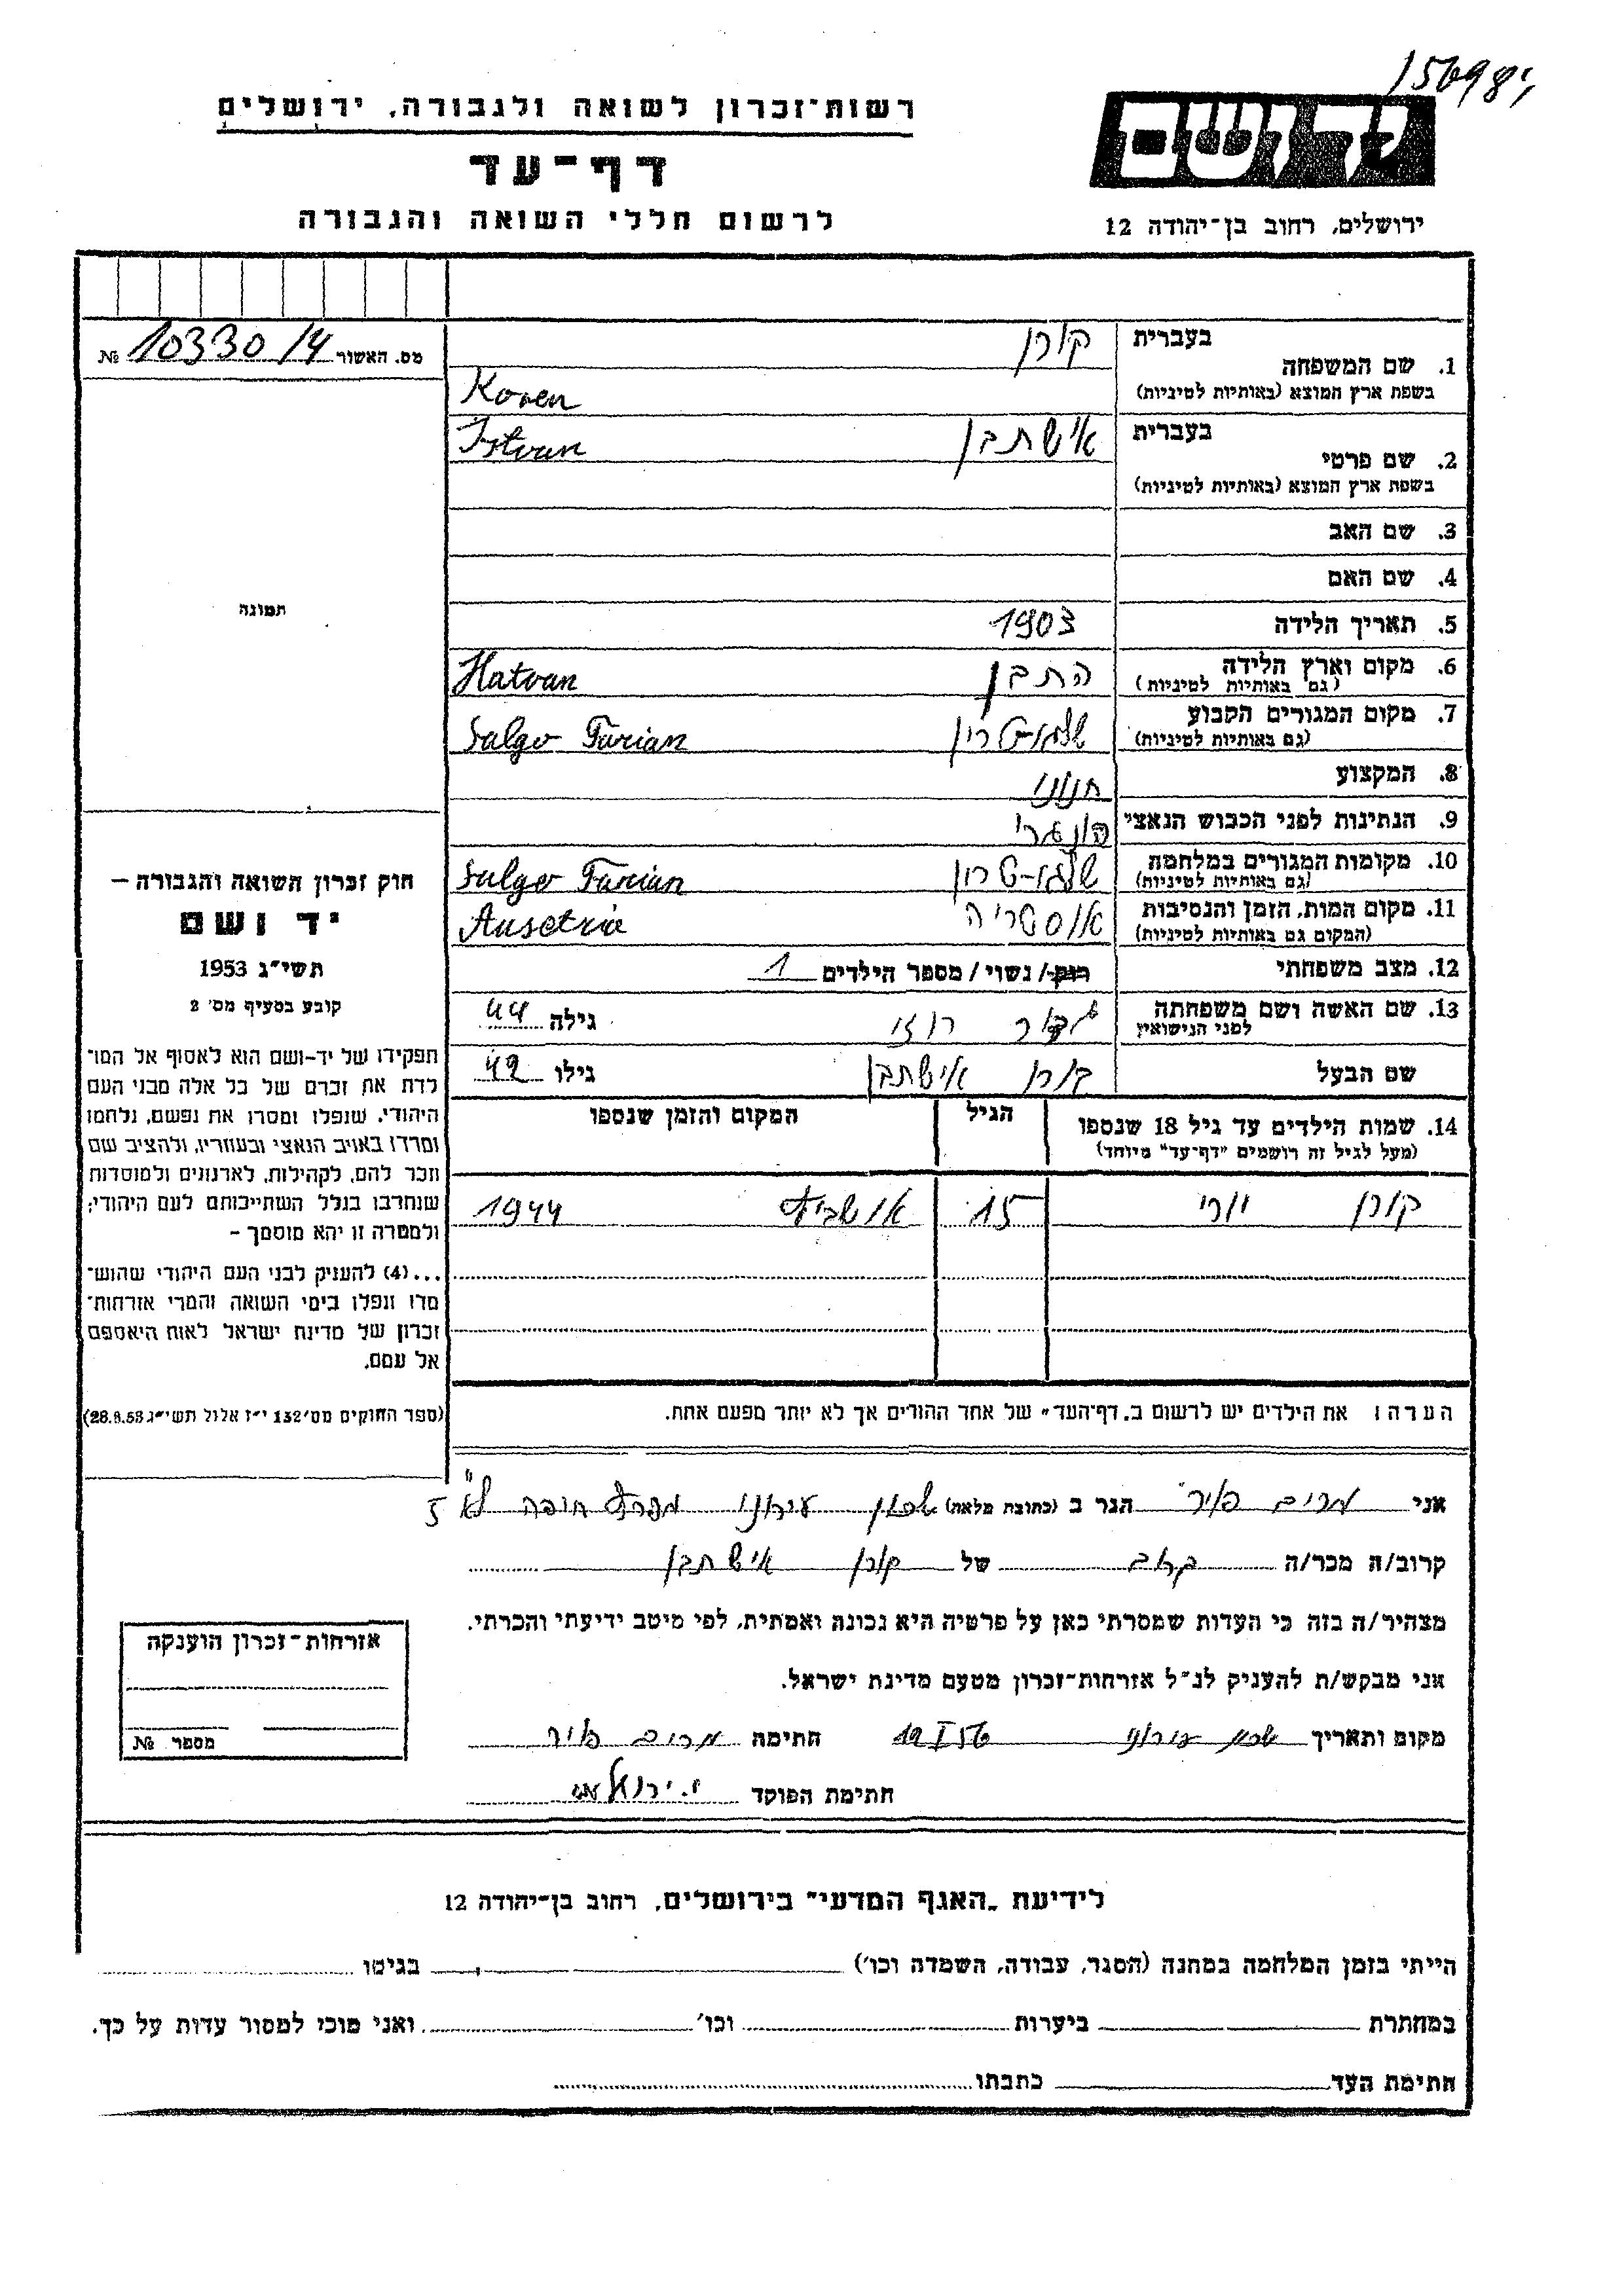 רשות־זכרון לשואה ולגבורה, ירושלים
דף־עד
לרשום חללי השואה והגבורה
יד ושם
ירושלים, רחוב בן־יהודה 12
מס. האשור 10330/4 №
1. שם המשפחה
בעברית קורן
בשפת ארץ המוצא (באותיות לטיניות) Koren
2. שם פרטי
בעברית אישתבן Istvan
בשפת ארץ המוצא (באותיות לטיניות)
3. שם האב
4. שם האם
5. תאריך הלידה 1903
6. מקום וארץ הלידה התבן Hatvan
(גם באותיות לטיניות)
7. מקום המגורים הקבוע Salgo Tarian
(גם באותיות לטיניות)
8. המקצוע חנוני
9. הנתינות לפני הכבוש הנאצי הונגרי
10. מקומות המגורים במלחמה Salgo Tarian
(גם באותיות לטיניות)
11. מקום המות, הזמן והנסיבות אוסטריה Ausetria
(המקום גם באותיות לטיניות)
12. מצב משפחתי רוק/ נשוי / מספר הילדים 1
13. שם האשה ושם משפחתה רוזי גילה 44
לפני הנישואין
שם הבעל קורן אישתבן גילו 42
14. שמות הילדים עד גיל 18 שנספו הגיל המקום והזמן שנספו
(מעל לגיל זה רושמים "דף־עד" מיוחד)
קורן יורי 15 אושביץ 1944
הערה: את הילדים יש לרשום ב„דף־העד" של אחד ההורים אך לא יותר מפעם אחת.
תמונה
חוק זכרון השואה והגבורה —
יד ושם
תשי"ג 1953
קובע בסעיף מס' 2
תפקידו של יד-ושם הוא לאסוף אל המו־
לדת את זכרם של כל אלה מבני העם
היהודי, שנפלו ומסרו את נפשם, נלחמו
ומרדו באויב הנאצי ובעוזריו, ולהציב שם
וזכר להם, לקהילות, לארגונים ולמוסדות
שנחרבו בגלל השתייכותם לעם היהודי;
ולמטרה זו יהא מוסמך –
...(4) להעניק לבני העם היהודי שהוש־
מדו ונפלו בימי השואה והמרי אזרחות־
זכרון של מדינת ישראל לאות היאספם
אל עמם.
(ספר החוקים מס' 132 י"ז אלול תשי"ג 28.8.53)
אני מרים פאיר הגר ב (כתובת מלאה) שכון עירוני מפרץ חיפה
קרוב/ה מכר/ה קרוב של קורן אישתבן
מצהיר/ה בזה כי העדות שמסרתי כאן על פרטיה היא נכונה ואמתית, לפי מיטב ידיעתי והכרתי.
אני מבקש/ת להעניק לנ"ל אזרחות־זכרון מטעם מדינת ישראל.
מקום ותאריך שכון עירוני 12 I 56 חתימה מרים פאיר
חתימת הפוקד
אזרחות־זכרון הוענקה
מספר №
לידיעת „האגף המדעי" בירושלים, רחוב בן־יהודה 12
הייתי בזמן המלחמה במחנה (הסגר, עבודה, השמדה וכו') בגיטו
במחתרת ביערות וכו' ואני מוכן למסור עדות על כך.
חתימת העד כתבתו